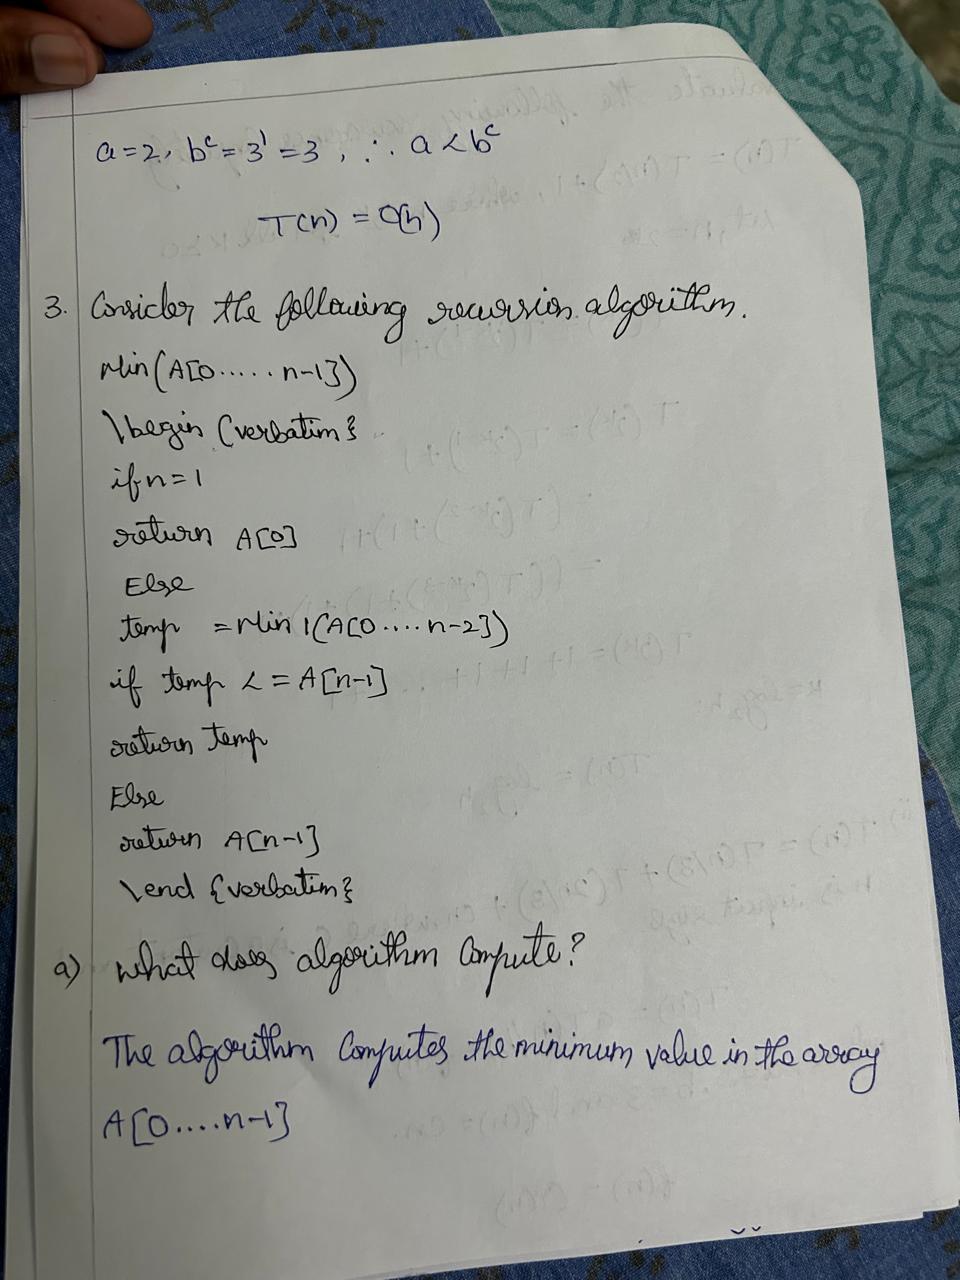 a=2, b^c = 3^1 = 3, ∴ a < b^c
T(n) = O(n)
3. Consider the following recursion algorithm.
Min(A[0.....n-1])
\begin {verbatim}
if n=1
return A[0]
Else
temp = Min 1(A[0....n-2])
if temp <= A[n-1]
return temp
Else
return A[n-1]
\end {verbatim}
a) What does algorithm Compute?
The algorithm Computes the minimum value in the array
A[0....n-1]